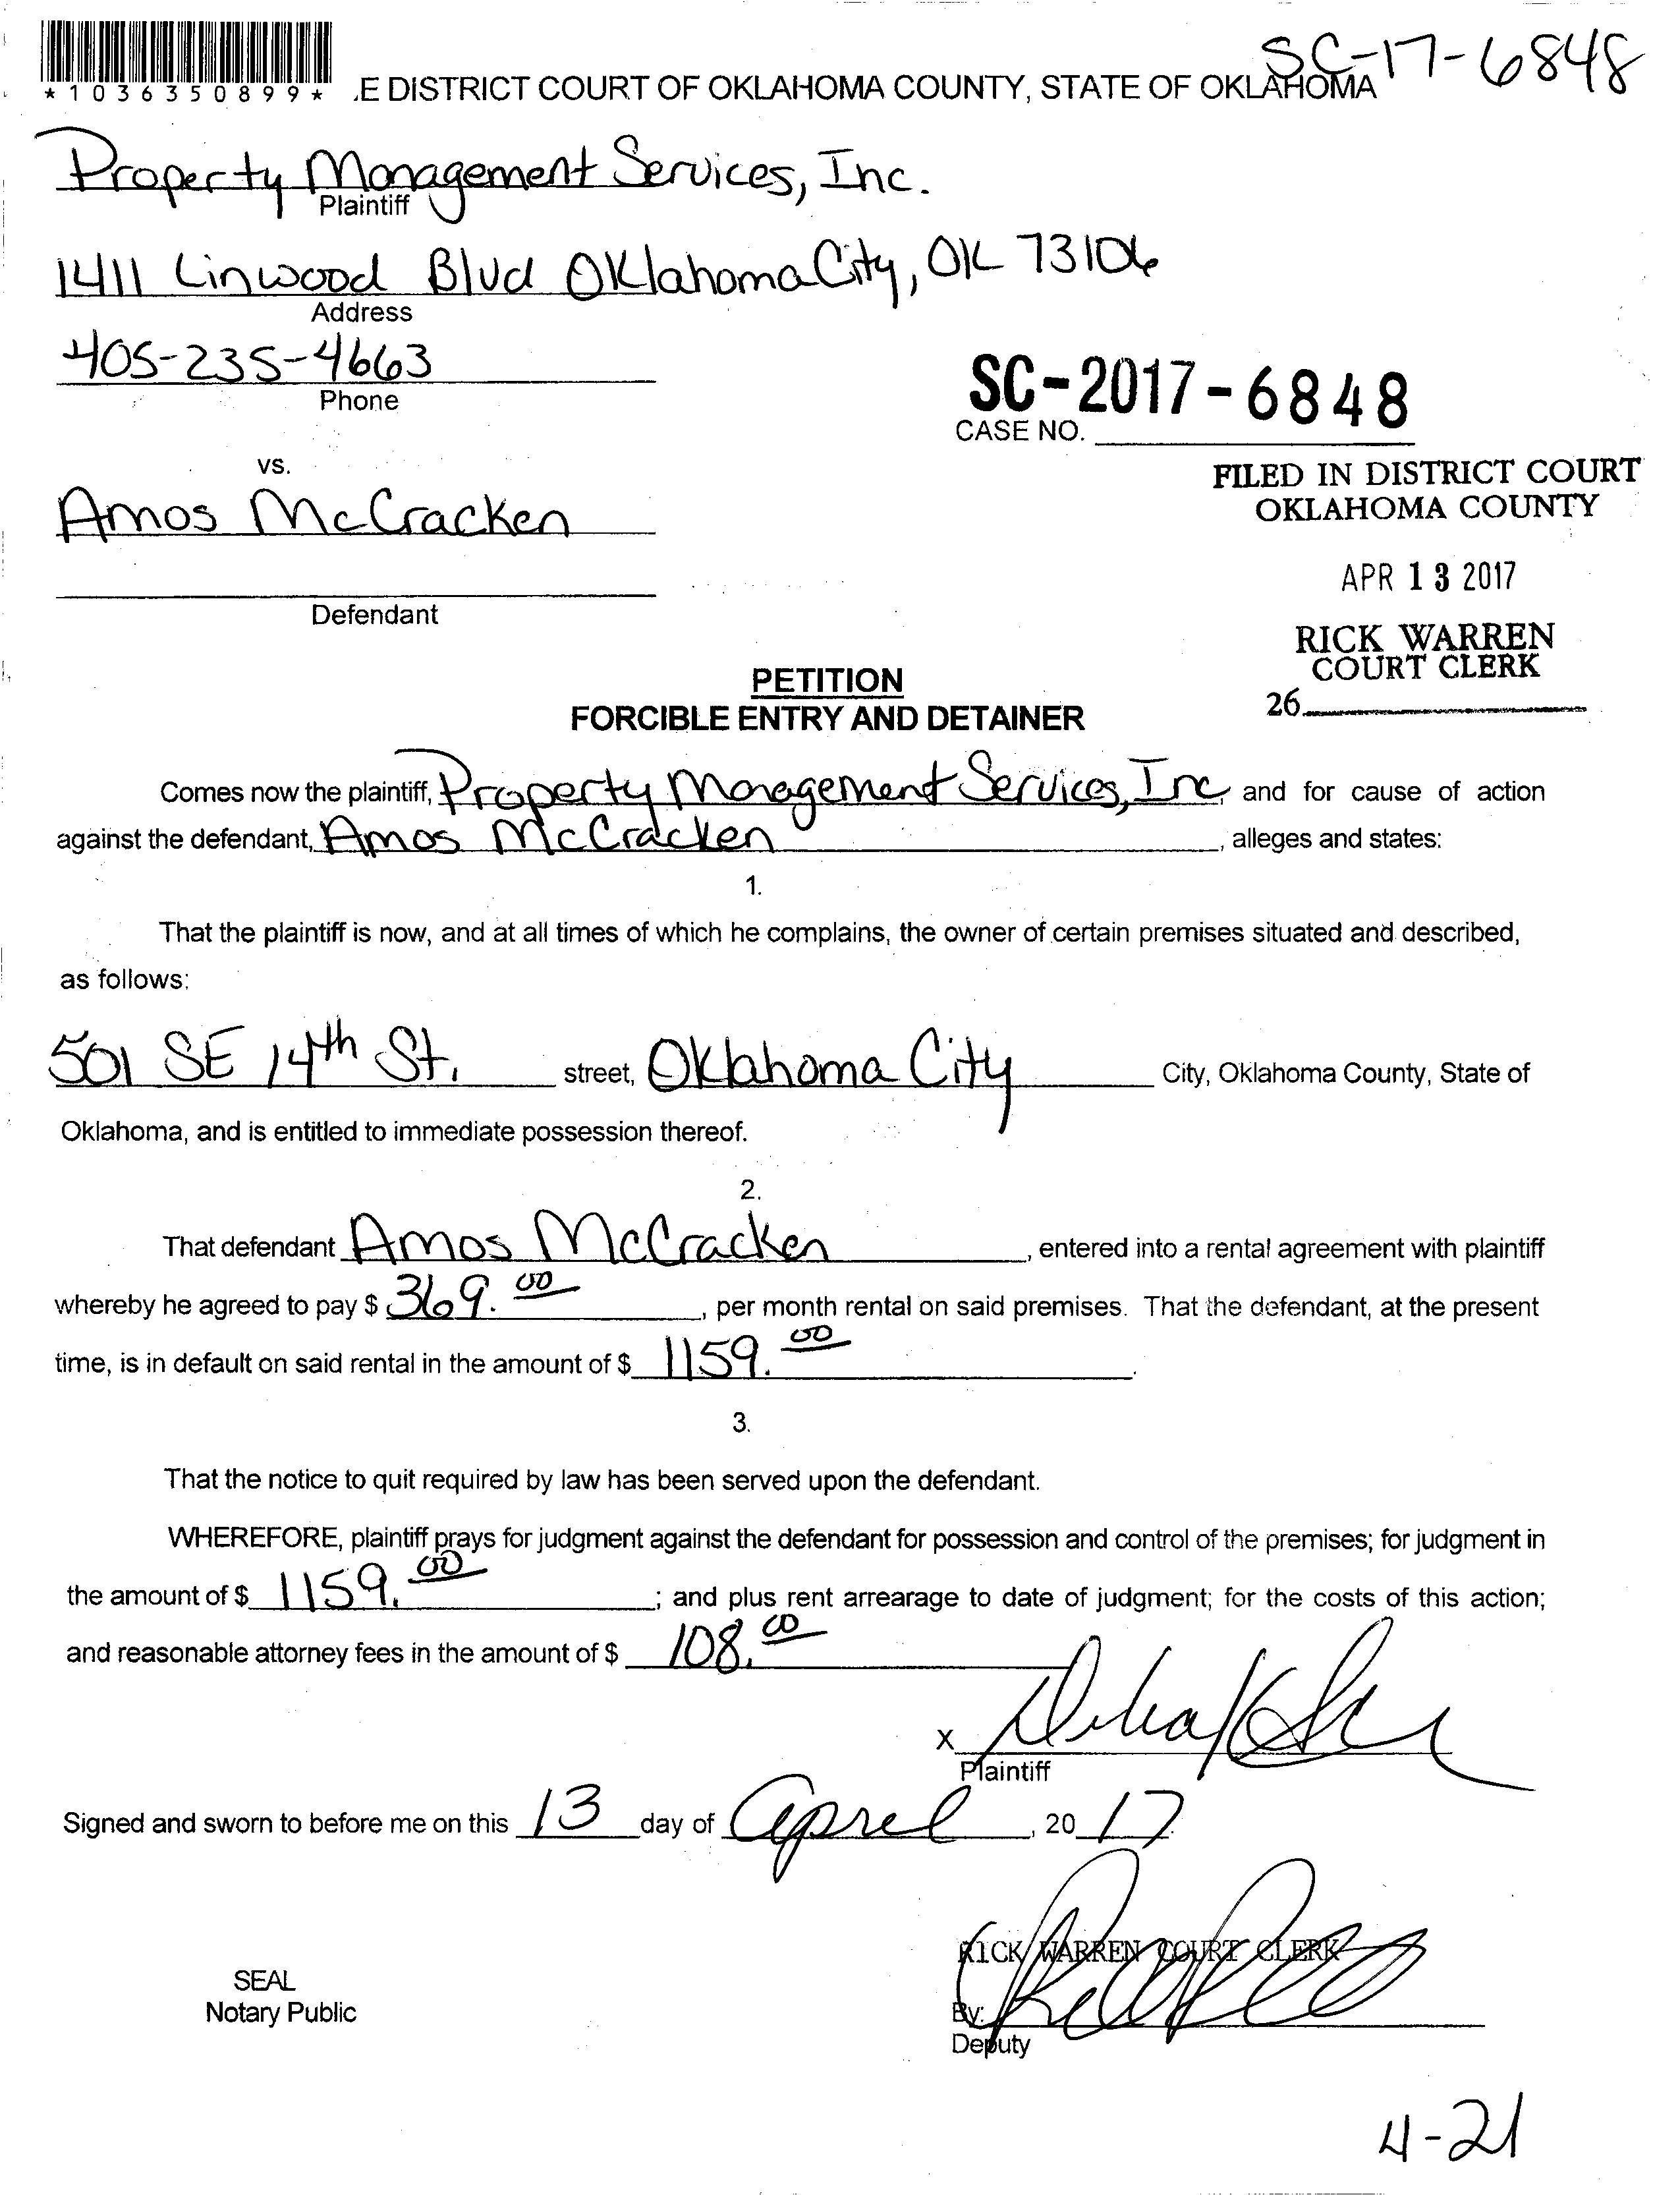 SC-17-6848
*1036350899* .E DISTRICT COURT OF OKLAHOMA COUNTY, STATE OF OKLAHOMA
Property Management Services, Inc.
Plaintiff
1411 Linwood Blvd Oklahoma City, OK 73106
Address
405-235-4663
Phone
SC-2017-6848
CASE NO.
vs.
FILED IN DISTRICT COURT
OKLAHOMA COUNTY
Amos McCracken
APR 13 2017
Defendant
RICK WARREN
COURT CLERK
26
PETITION
FORCIBLE ENTRY AND DETAINER
Comes now the plaintiff, Property Management Services, Inc, and for cause of action
against the defendant, Amos McCracken, alleges and states:
1.
That the plaintiff is now, and at all times of which he complains, the owner of certain premises situated and described,
as follows:
501 SE 14th St. street, Oklahoma City City, Oklahoma County, State of
Oklahoma, and is entitled to immediate possession thereof.
2.
That defendant Amos McCracken, entered into a rental agreement with plaintiff
whereby he agreed to pay $ 369.00, per month rental on said premises. That the defendant, at the present
time, is in default on said rental in the amount of $ 1159.00.
3.
That the notice to quit required by law has been served upon the defendant.
WHEREFORE, plaintiff prays for judgment against the defendant for possession and control of the premises; for judgment in
the amount of $ 1159.00; and plus rent arrearage to date of judgment; for the costs of this action;
and reasonable attorney fees in the amount of $ 108.00
X
Plaintiff
Signed and sworn to before me on this 13 day of April, 20 17.
RICK WARREN COURT CLERK
SEAL
Notary Public
By:
Deputy
4-21